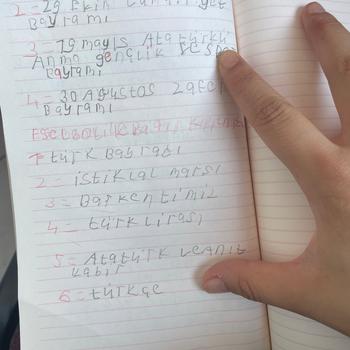 2=29 Ekim Cumhuriyet
Bayramı
3=19 mayıs Atatürk'ü
Anma gençlik ve spor
Bayramı
4=30 Ağustos Zafer
Bayramı
1 türk Bayrağı
2=istiklal marşı
3=Başkentimiz
4=türk lirası
5=Atatürk ve anıt
kabir
6=türkçe